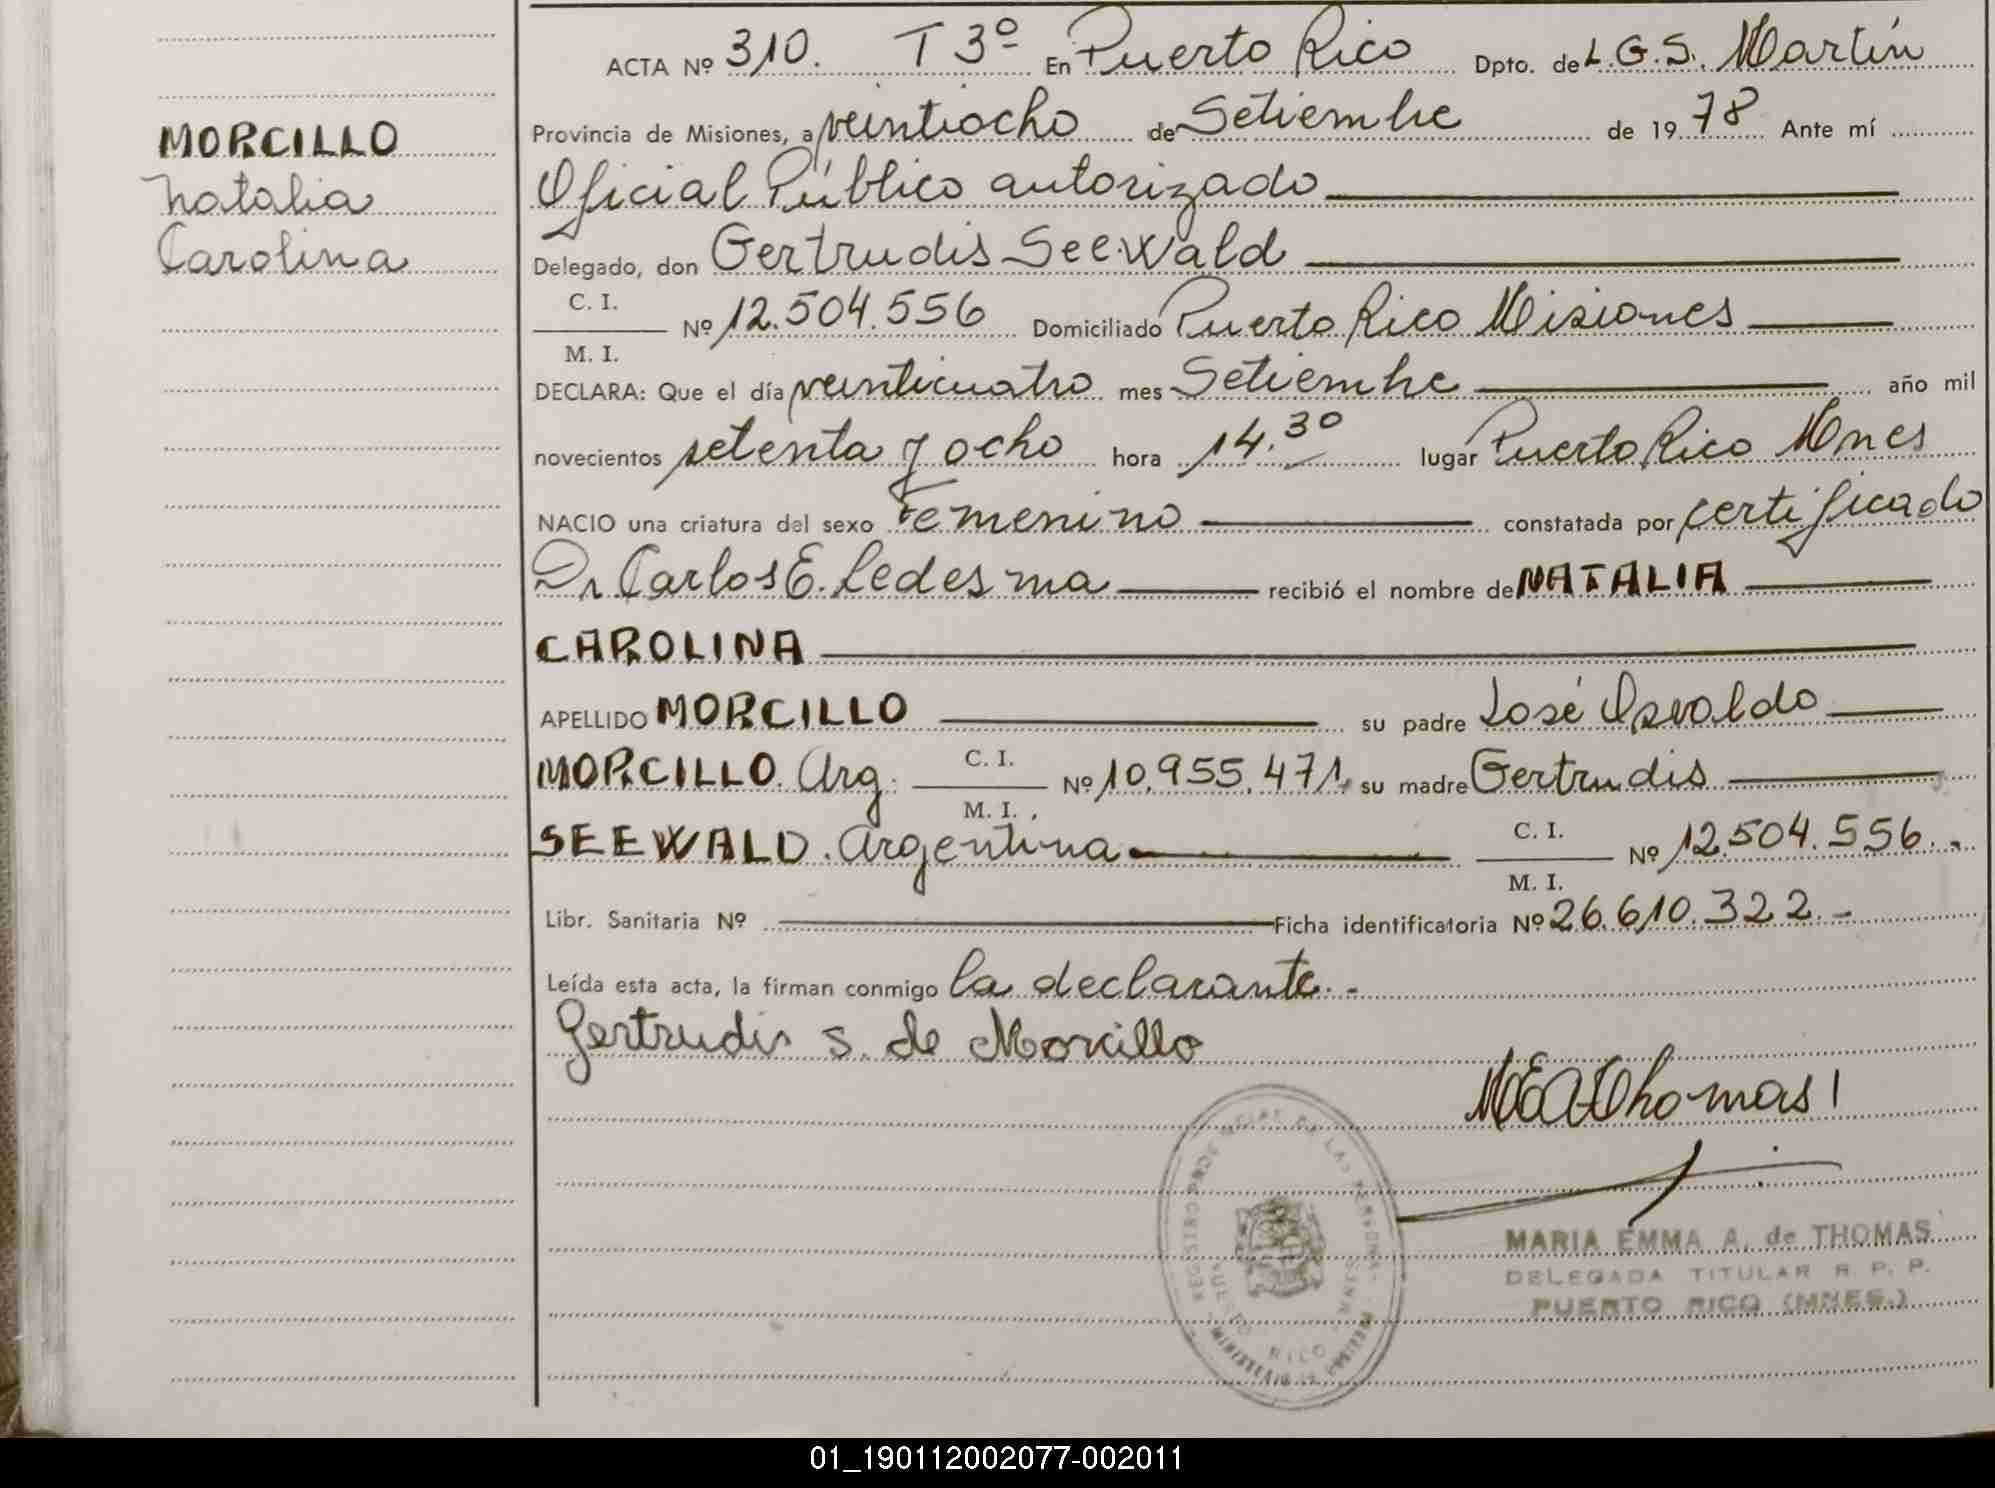 MORCILLO
Natalia
Carolina
ACTA Nº 310. T 3º En Puerto Rico Dpto. de L.G.S. Martín
Provincia de Misiones, a veintiocho de Setiembre de 1978 Ante mí
Oficial Público autorizado
Delegado, don Gertrudis Seewald
C. I.
Nº 12.504.556 Domiciliado Puerto Rico Misiones
M. I.
DECLARA: Que el día veinticuatro mes Setiembre año mil
novecientos setenta y ocho hora 14.30 lugar Puerto Rico Mnes
NACIO una criatura del sexo Femenino constatada por certificado
Dr Carlos E. Ledesma recibió el nombre de NATALIA
CAROLINA
APELLIDO MORCILLO su padre José Osvaldo
MORCILLO. Arg. C. I. Nº 10.955.471, su madre Gertrudis
M. I.
SEEWALD. Argentina C. I. Nº 12.504.556.-
M. I.
Libr. Sanitaria Nº Ficha identificatoria Nº 26.610.322.-
Leída esta acta, la firman conmigo la declarante.-
Gertrudis S. de Morcillo
MEAThomas
REGISTRO PROVINCIAL DE LAS PERSONAS
PUERTO RICO
MARIA EMMA A. de THOMAS
DELEGADA TITULAR R. P. P.
PUERTO RICO (MNES.)
01_190112002077-002011